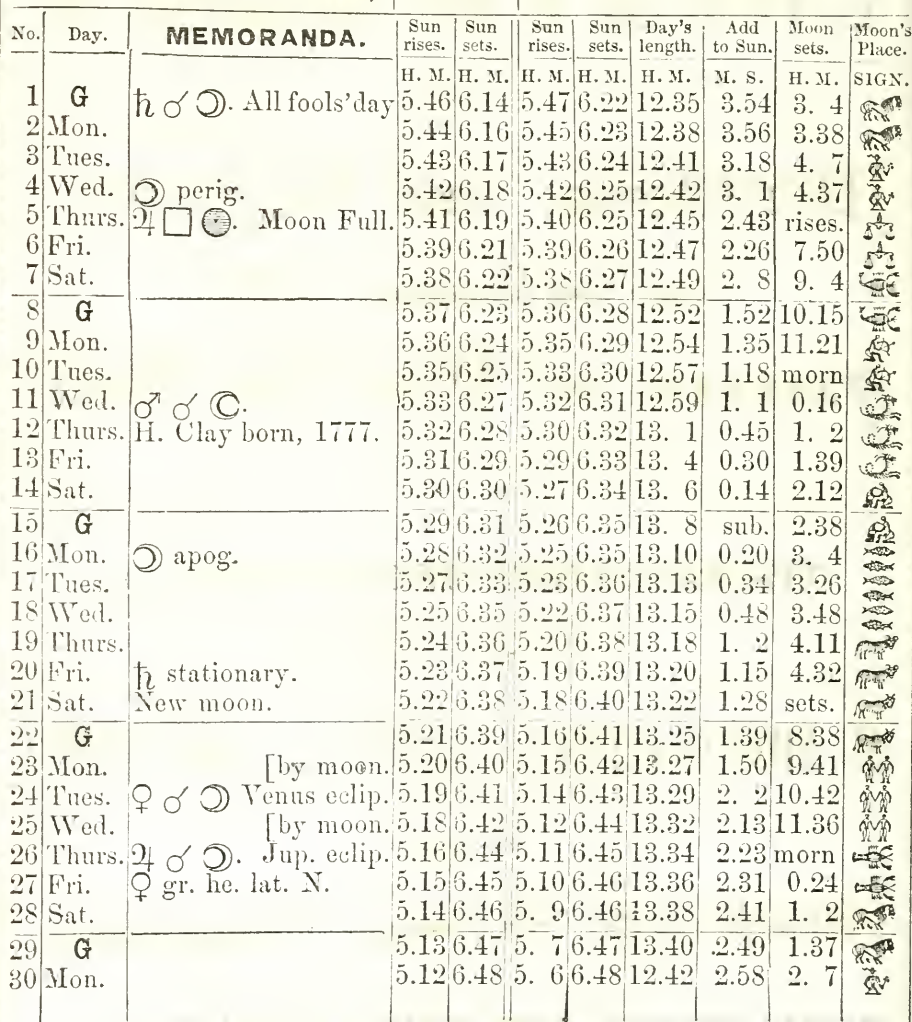 No. Day. MEMORANDA. Sun rises. Sun sets. Sun rises. Sun sets. Day's length. Add to Sun. Moon sets. Moon's Place.
H. M. H. M. H. M. H. M. H. M. M. S. H. M. SIGN.
1 G ♄ ☌ ☽. All fools' day 5.46 6.14 5.47 6.22 12.35 3.54 3. 4
2 Mon. 5.44 6.16 5.45 6.23 12.38 3.56 3.38
3 Tues. 5.43 6.17 5.43 6.24 12.41 3.18 4. 7
4 Wed. ☽ perig. 5.42 6.18 5.42 6.25 12.42 3. 1 4.37
5 Thurs. ♃ □ ☉. Moon Full. 5.41 6.19 5.40 6.25 12.45 2.43 rises.
6 Fri. 5.39 6.21 5.39 6.26 12.47 2.26 7.50
7 Sat. 5.38 6.22 5.38 6.27 12.49 2. 8 9. 4
8 G 5.37 6.23 5.36 6.28 12.52 1.52 10.15
9 Mon. 5.36 6.24 5.35 6.29 12.54 1.35 11.21
10 Tues. 5.35 6.25 5.33 6.30 12.57 1.18 morn
11 Wed. ♂ ☌ ☾. 5.33 6.27 5.32 6.31 12.59 1. 1 0.16
12 Thurs. H. Clay born, 1777. 5.32 6.28 5.30 6.32 13. 1 0.45 1. 2
13 Fri. 5.31 6.29 5.29 6.33 13. 4 0.30 1.39
14 Sat. 5.30 6.30 5.27 6.34 13. 6 0.14 2.12
15 G 5.29 6.31 5.26 6.35 13. 8 sub. 2.38
16 Mon. ☽ apog. 5.28 6.32 5.25 6.35 13.10 0.20 3. 4
17 Tues. 5.27 6.33 5.23 6.36 13.13 0.34 3.26
18 Wed. 5.25 6.35 5.22 6.37 13.15 0.48 3.48
19 Thurs. 5.24 6.36 5.20 6.38 13.18 1. 2 4.11
20 Fri. ♄ stationary. 5.23 6.37 5.19 6.39 13.20 1.15 4.32
21 Sat. New moon. 5.22 6.38 5.18 6.40 13.22 1.28 sets.
22 G 5.21 6.39 5.16 6.41 13.25 1.39 8.38
23 Mon. [by moon. 5.20 6.40 5.15 6.42 13.27 1.50 9.41
24 Tues. ♀ ☌ ☽ Venus eclip. 5.19 6.41 5.14 6.43 13.29 2. 2 10.42
25 Wed. [by moon. 5.18 6.42 5.12 6.44 13.32 2.13 11.36
26 Thurs. ♃ ☌ ☽. Jup. eclip. 5.16 6.44 5.11 6.45 13.34 2.23 morn
27 Fri. ♀ gr. he. lat. N. 5.15 6.45 5.10 6.46 13.36 2.31 0.24
28 Sat. 5.14 6.46 5. 9 6.46 13.38 2.41 1. 2
29 G 5.13 6.47 5. 7 6.47 13.40 2.49 1.37
30 Mon. 5.12 6.48 5. 6 6.48 12.42 2.58 2. 7